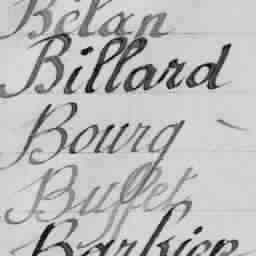 Bélan
Billard
Bourg
Buffet
Barkien